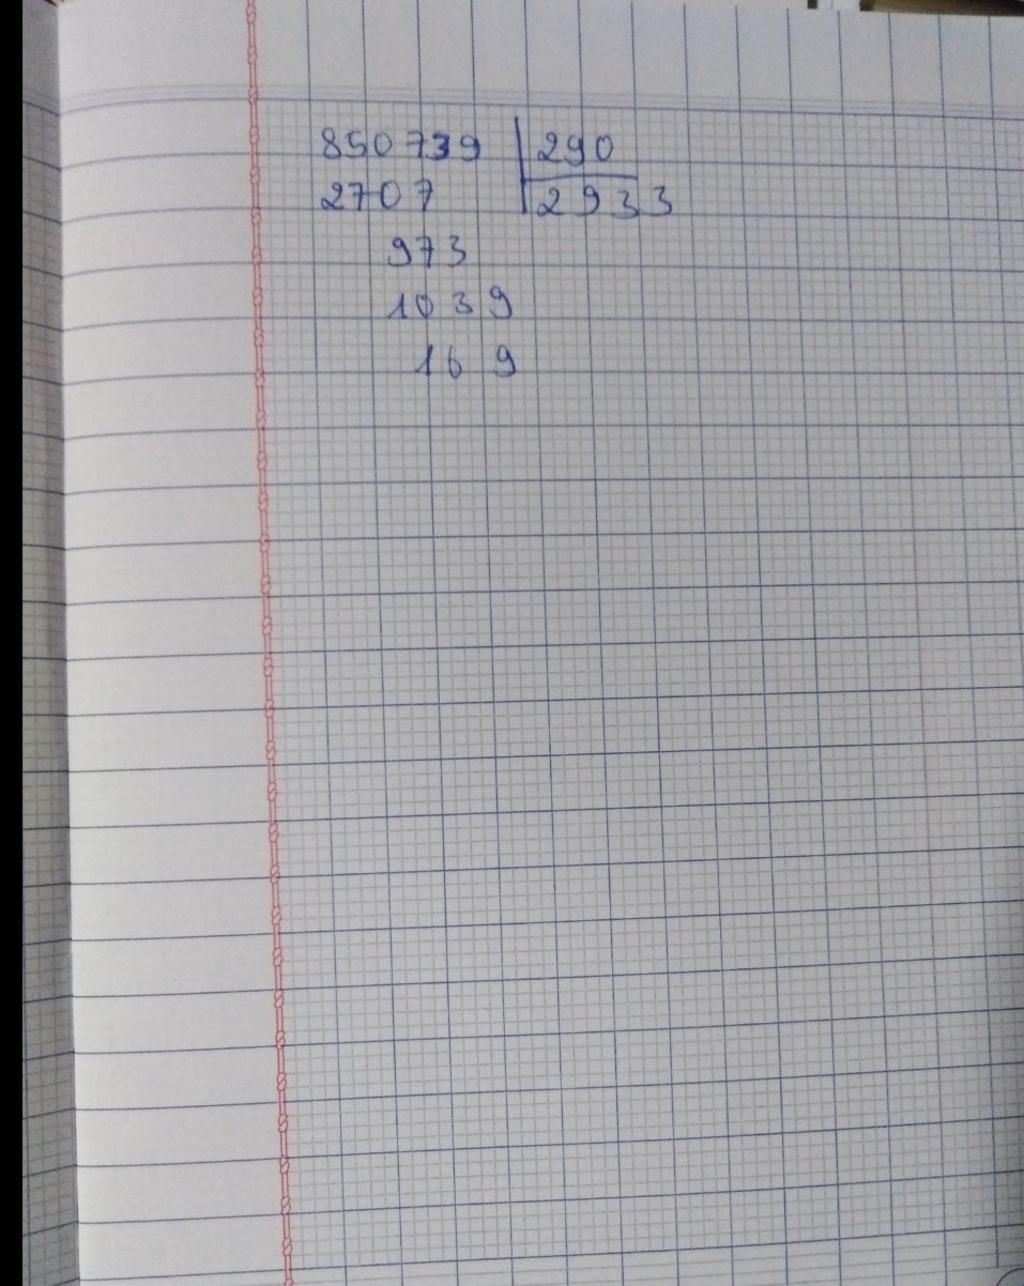 850739 290
2707 2933
973
1039
169